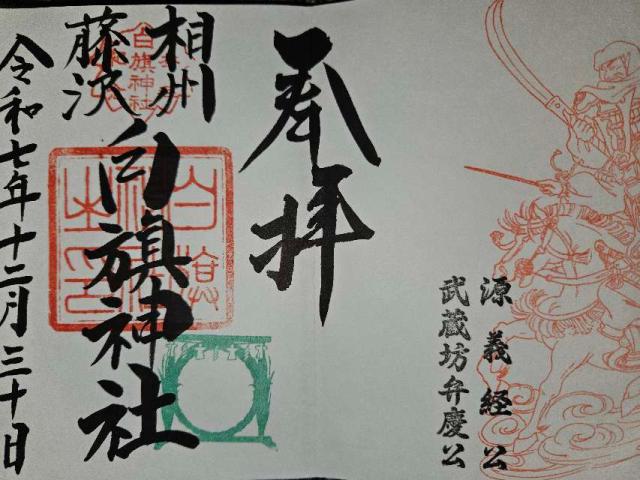 源義経公
武蔵坊弁慶公
奉拝
相州
藤沢
白旗神社
白旗神社
令和七年十二月三十日